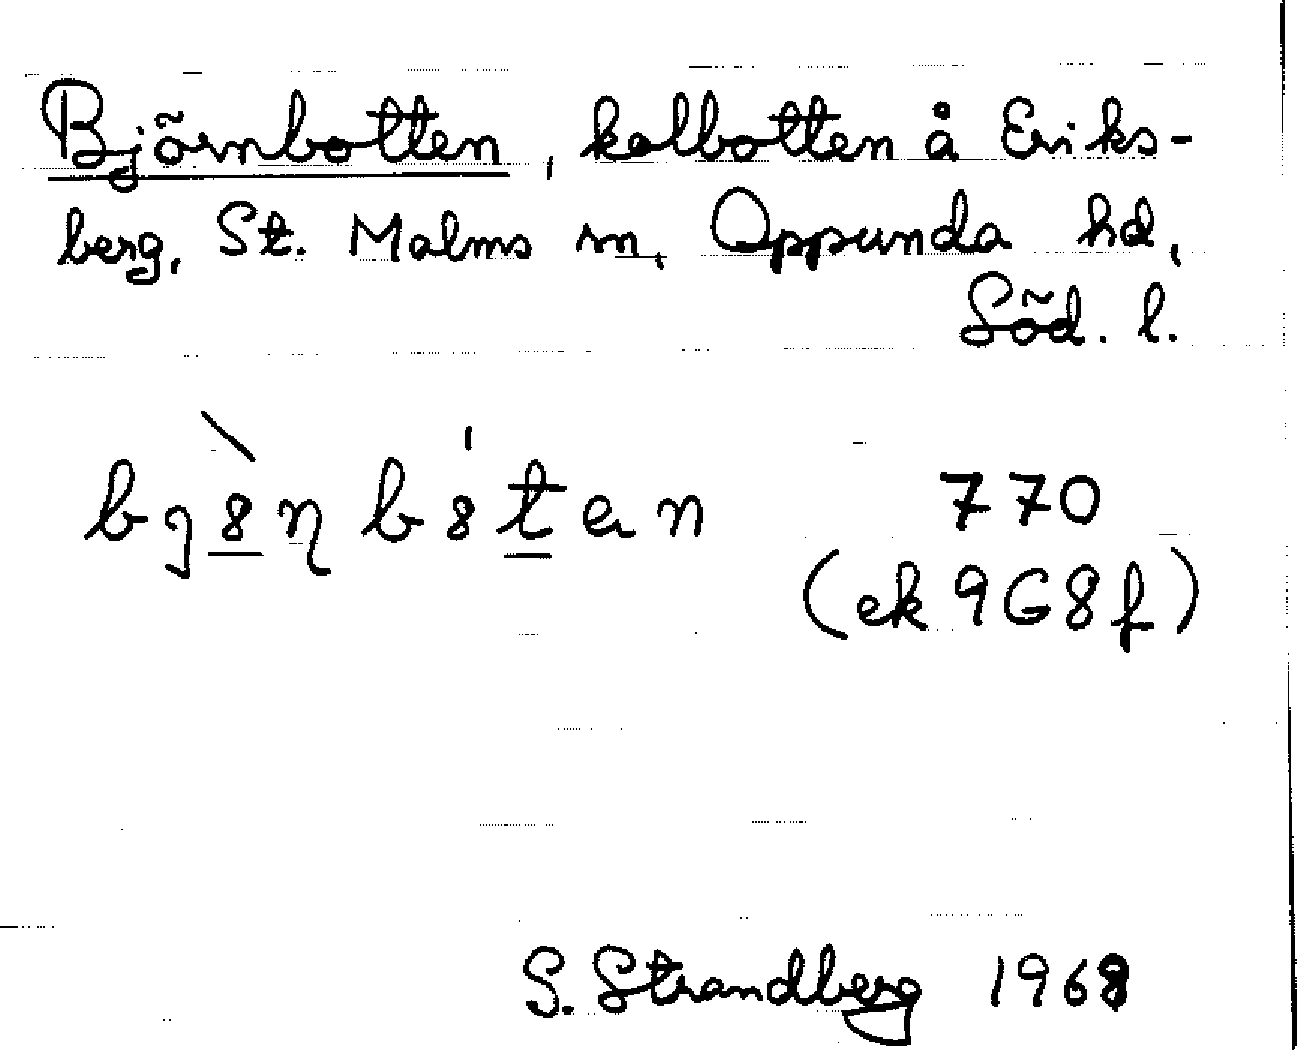 Björnbotten, kolbotten å Eriks-
berg, St. Malms sn, Oppunda hd,
Söd. l.
770
(ek 9G8f)
S. Strandberg 1968